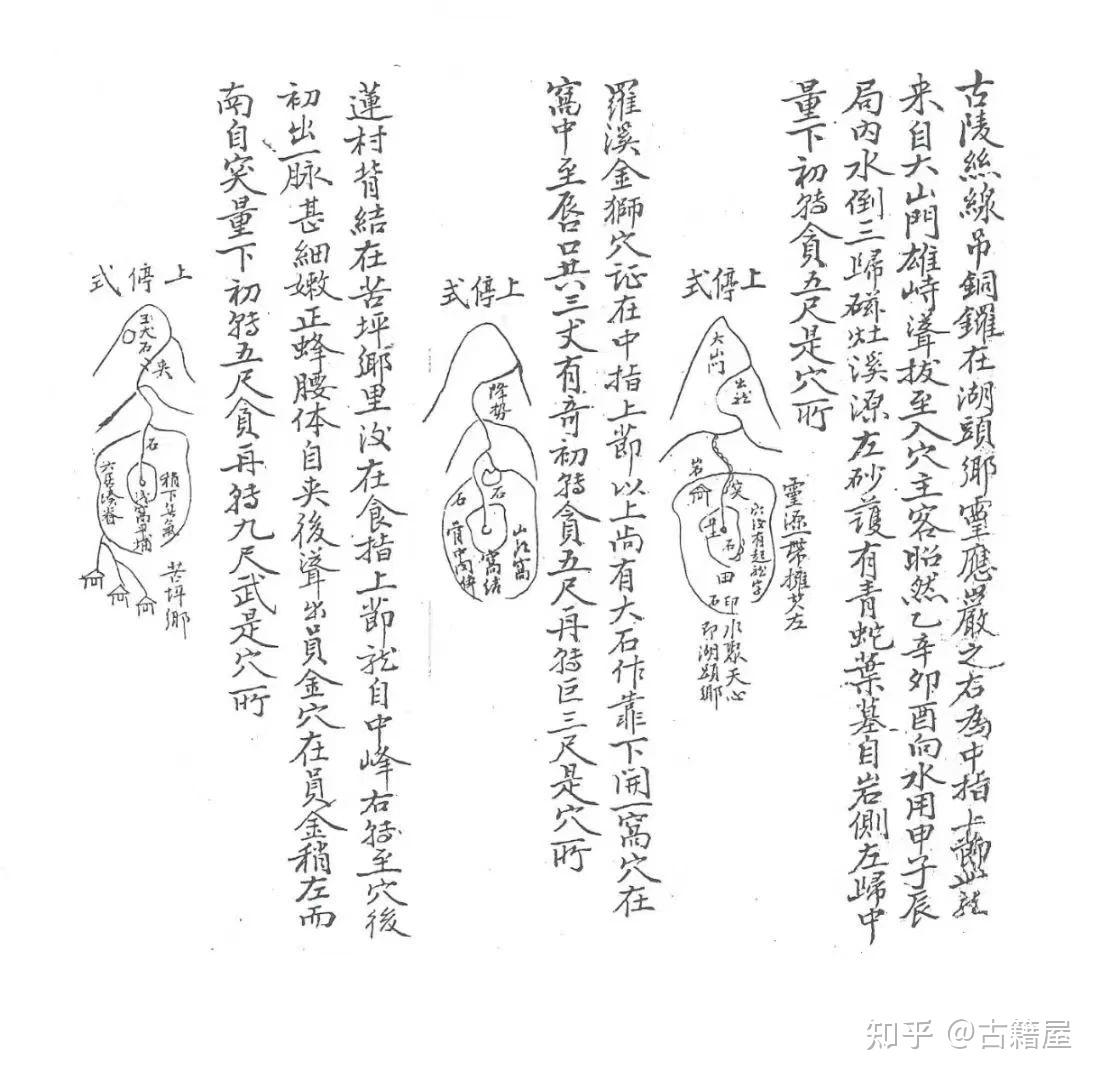 古陵絲線吊銅鑼在湖頭鄉靈應嚴之右為中指上節此龍
来自大山門雄峙聳拔至入穴主客昭然乙辛夘酉向水用申子辰
局内水倒三歸磁灶溪源左砂護有青蛇葉墓自岩側左歸中
量下初轉貪五尺是穴所
上停式
大山門
出龍
岩
突
石
田
穴後有起龍字
靈源一帶擁其左
印水聚天心
石
即湖頭鄉
羅溪金獅穴証在中指上節以上尚有大石作靠下開一窩穴在
窩中至唇口共三丈有奇初轉貪五尺再轉巨三尺是穴所
上停式
降勢
石
石
窩結
蓮村背結在苦坪鄉里後在食指上節龍自中峰右轉至穴後
初出一脉甚細嫩正蜂腰体自夾後聳出員金穴在員金稍左而
南自突量下初轉五尺貪再轉九尺武是穴所
上停式
大石
夾
石
稍下
浅窩平埔
苦坪鄉
知乎 @古籍屋